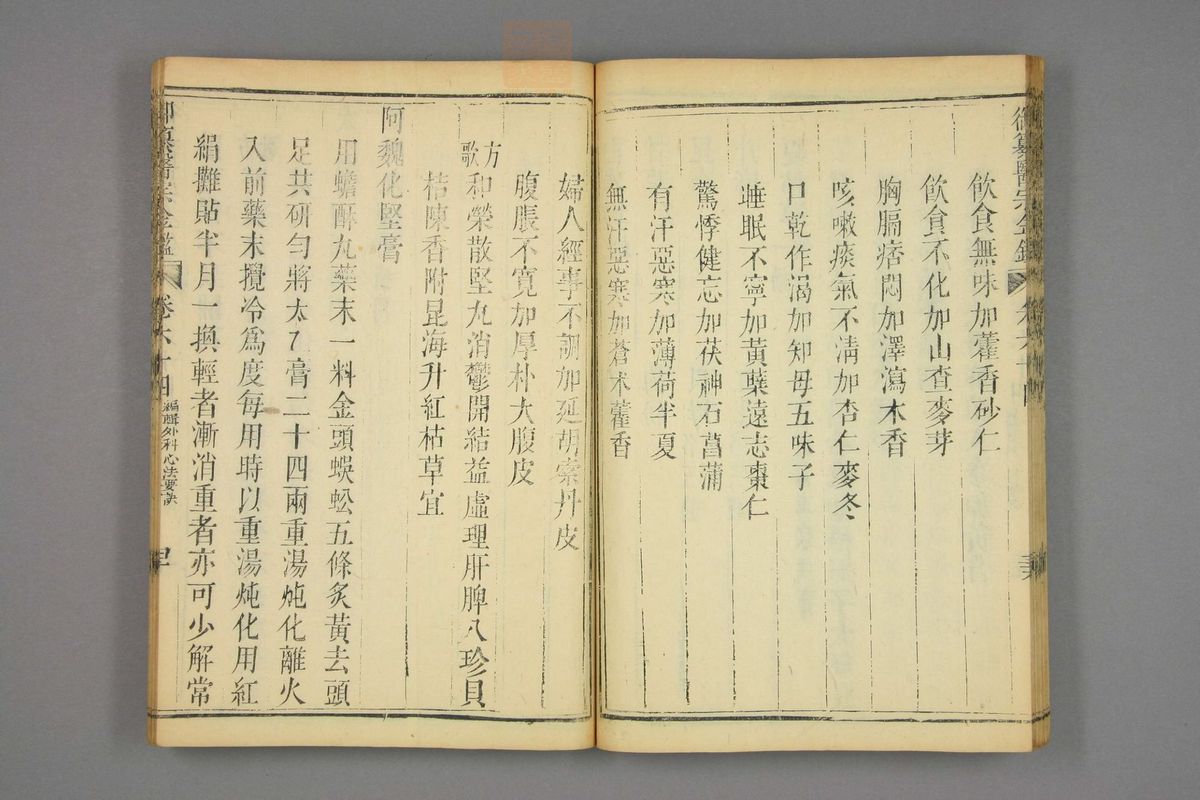 飲食無味加藿香砂仁
飲食不化加山查麥芽
胸膈痞悶加澤瀉木香
咳嗽痰氣不清加杏仁麥冬
口乾作渴加知母五味子
睡眠不寧加黃蘗遠志棗仁
驚悸健忘加茯神石菖蒲
有汗惡寒加薄荷半夏
無汗惡寒加蒼术藿香
婦人經事不調加延胡索丹皮
腹脹不寬加厚朴大腹皮
方歌 和榮散堅丸消鬱開結益虛理肝脾八珍貝
桔陳香附昆海升紅枯草宜
阿魏化堅膏
用蟾酥丸藥末一料金頭蜈蚣五條炙黃去頭
足共研勻將太乙膏二十四兩重湯炖化離火
入前藥末攪冷爲度每用時以重湯炖化用紅
絹攤貼半月一換輕者漸消重者亦可少解常
御纂醫宗金鑑 卷六十四 編輯外科心法要訣